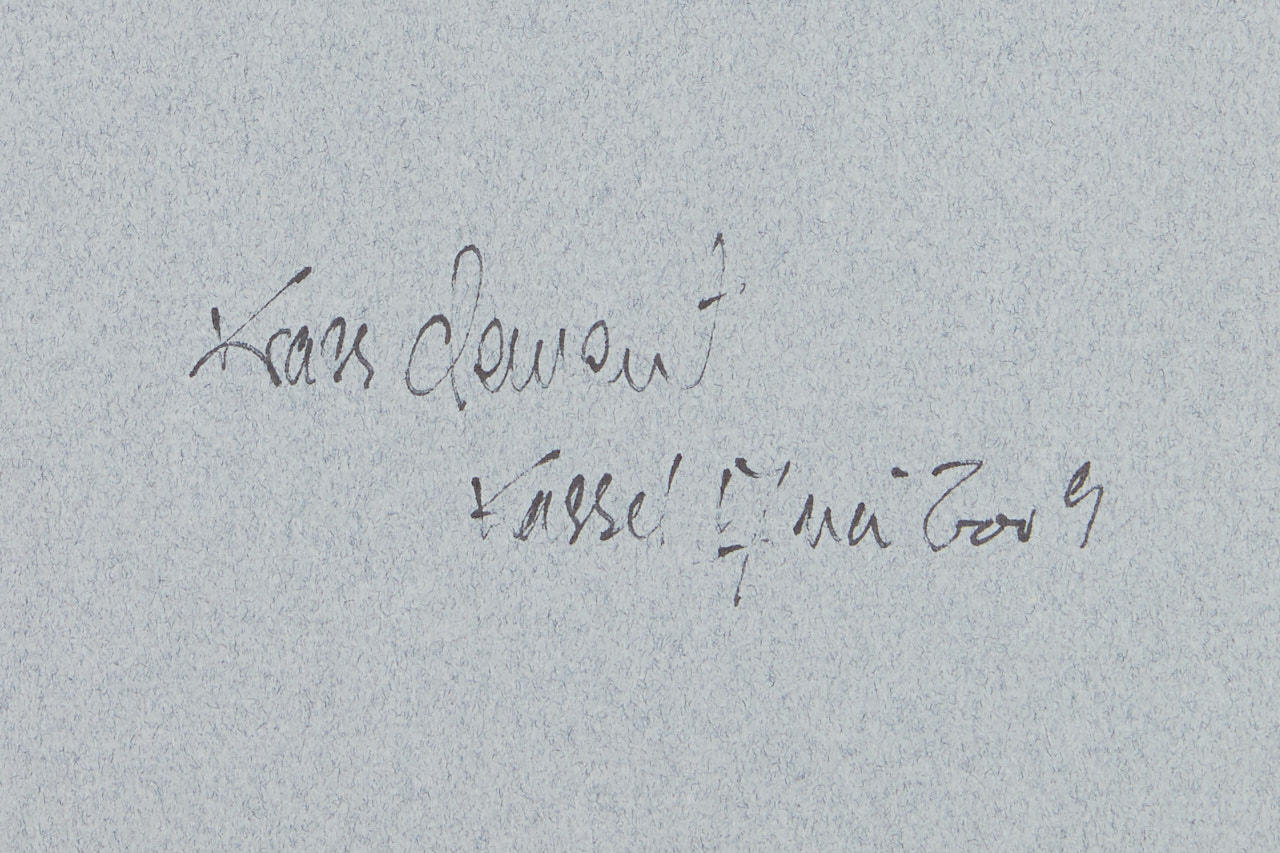 Krass Clement
Kassel Mai 2009